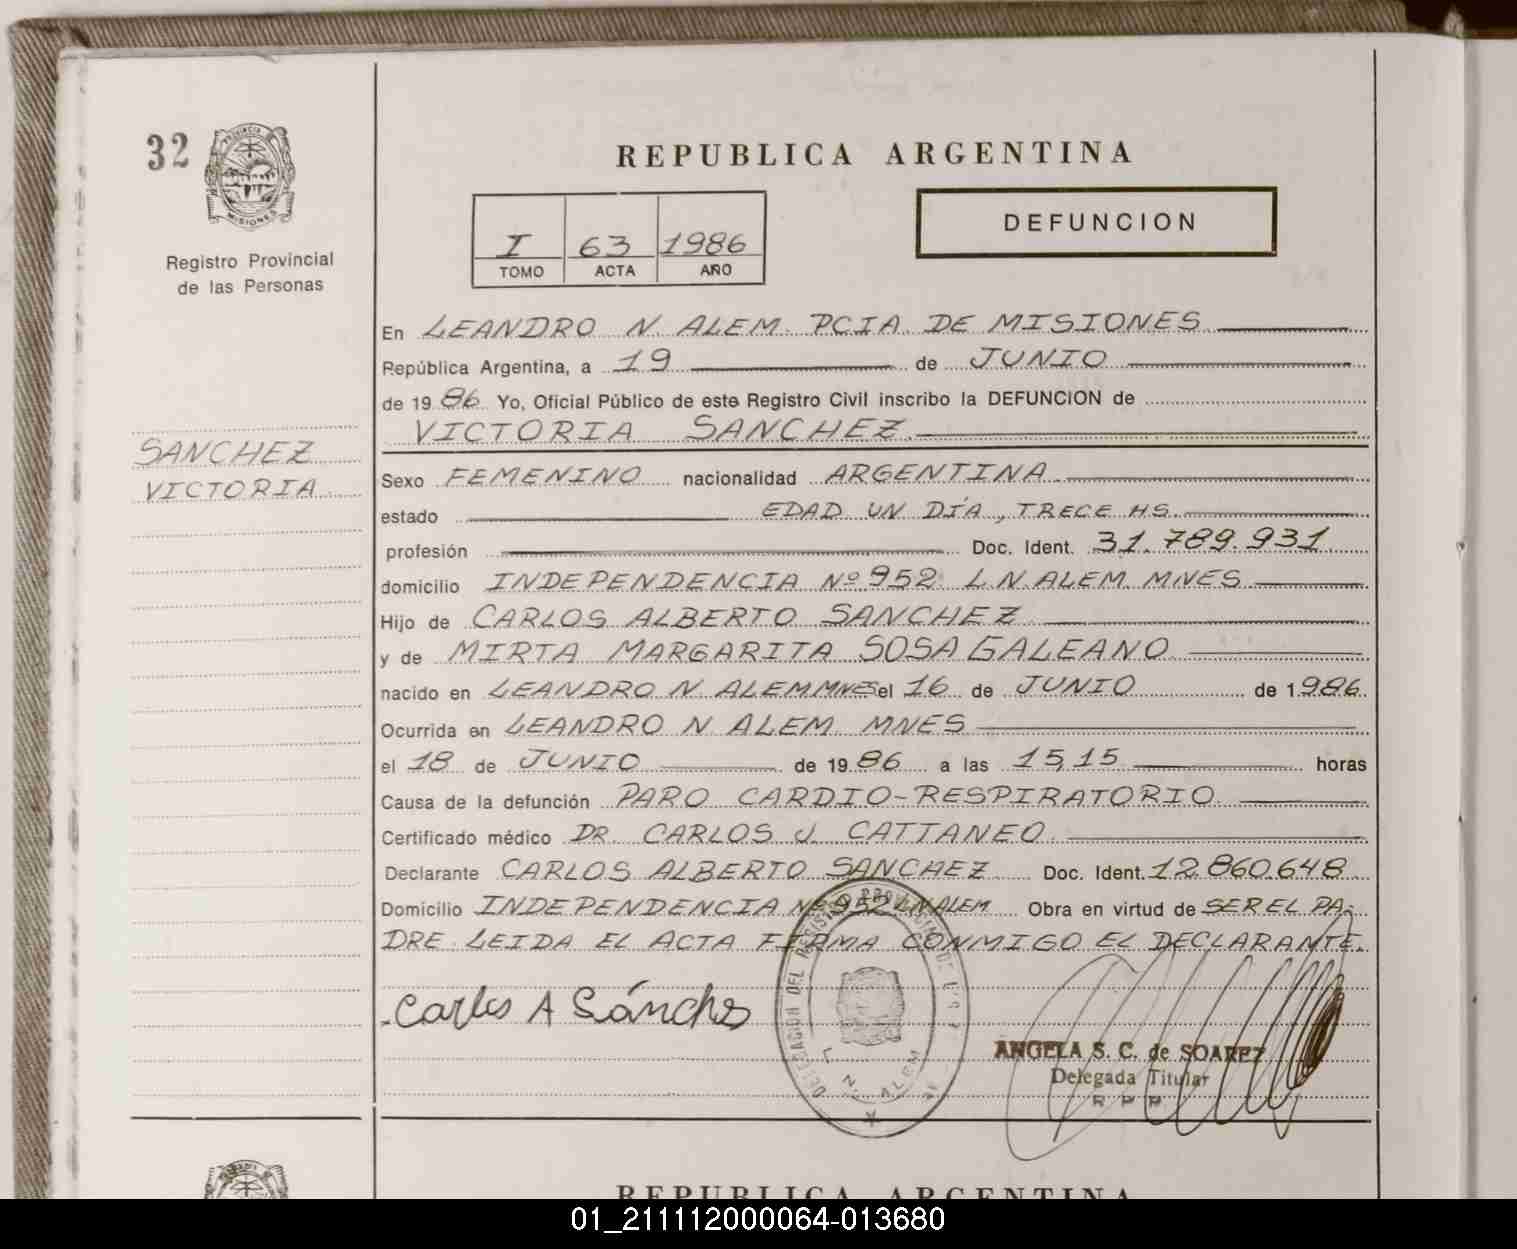 32
PROVINCIA
MISIONES
Registro Provincial
de las Personas
SANCHEZ
VICTORIA
REPUBLICA ARGENTINA
I 63 1986
TOMO ACTA AÑO
DEFUNCION
En LEANDRO N. ALEM. PCIA. DE MISIONES
República Argentina, a 19 de JUNIO
de 1986 Yo, Oficial Público de este Registro Civil inscribo la DEFUNCION de
VICTORIA SANCHEZ.
Sexo FEMENINO nacionalidad ARGENTINA
estado EDAD UN DÍA, TRECE HS.
profesión Doc. Ident. 31.789.931
domicilio INDEPENDENCIA Nº 952 L.N. ALEM. MNES
Hijo de CARLOS ALBERTO SANCHEZ
y de MIRTA MARGARITA SOSA GALEANO
nacido en LEANDRO N. ALEM MNES el 16 de JUNIO de 1986
Ocurrida en LEANDRO N. ALEM. MNES
el 18 de JUNIO de 1986 a las 15,15 horas
Causa de la defunción PARO CARDIO-RESPIRATORIO.
Certificado médico DR. CARLOS J. CATTANEO.
Declarante CARLOS ALBERTO SANCHEZ Doc. Ident. 12.860.648
Domicilio INDEPENDENCIA Nº 952 L.N. ALEM Obra en virtud de SER EL PA-
DRE. LEIDA EL ACTA FIRMA CONMIGO EL DECLARANTE.
Carlos A Sánchs
DELEGACION DEL REGISTRO
L. N. ALEM
ANGELA S. C. de SOAREZ
Delegada Titular
R P P
REPUBLICA ARGENTINA
01_211112000064-013680